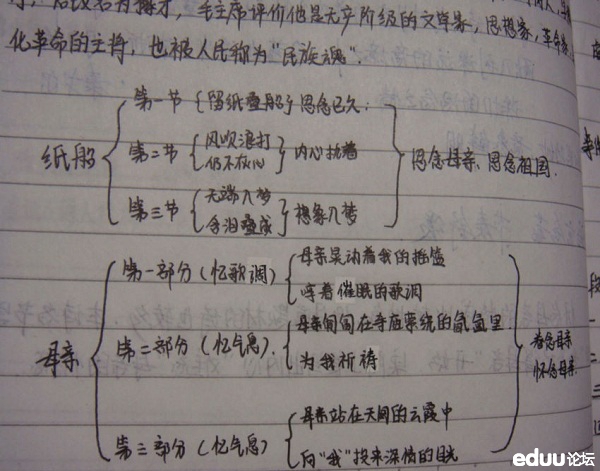 后改名为 毛主席评价他是无产阶级的文学家，思想家，革命家
化革命的主将，也被人民称为"民族魂".
第一节 {留纸叠船} 思念已久.
风吹浪打
纸船 第二节 内心执着 思念母亲、思念祖国.
仍不灰心
无端入梦
第三节 想象入梦
含泪叠成
母亲晃动着我的摇篮
第一部分（忆歌调）
哼着催眠的歌调
母亲 在寺庙萦绕的氤氲里
母亲 第二部分（忆气息）. 眷念母亲
为我祈祷 怀念母亲.
母亲站在天间的云霞中
第三部分（忆气息）
向"我"投来深情的目光
eduu论坛